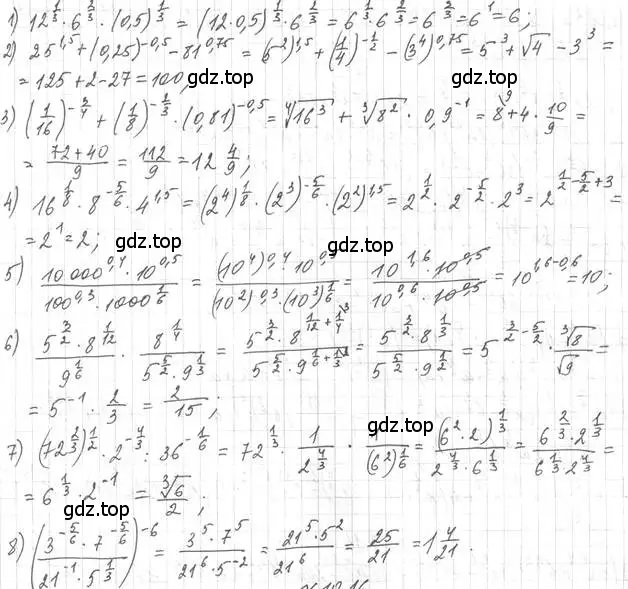 1) 12^{1/3} · 6^{2/3} · (0,5)^{1/3} = (12 · 0,5)^{1/3} · 6^{2/3} = 6^{1/3} · 6^{2/3} = 6^{2/3} = 6^1 = 6;
2) 25^{1,5} + (0,25)^{-0,5} - 81^{0,75} = (5^2)^{1,5} + (1/4)^{-1/2} - (3^4)^{0,75} = 5^3 + √4 - 3^3 =
= 125 + 2 - 27 = 100;
gdz.top gdz.top
3) (1/16)^{-3/4} + (1/8)^{-2/3} · (0,81)^{-0,5} = ⁴√(16^3) + ³√(8^2) · 0,9^{-1} = 8^{\9} + 4 · 10/9 =
= (72+40)/9 = 112/9 = 12 4/9;
gdz.top
4) 16^{1/8} · 8^{-5/6} · 4^{1,5} = (2^4)^{1/8} · (2^3)^{-5/6} · (2^2)^{1,5} = 2^{1/2} · 2^{-5/2} · 2^3 = 2^{1/2 - 5/2 + 3} =
= 2^1 = 2;
gdz.top gdz.top
5) (10 000^{0,4} · 10^{0,5})/(100^{0,3} · 1000^{1/6}) = ((10^4)^{0,4} · 10^{0,5})/((10^2)^{0,3} · (10^3)^{1/6}) = (10^{1,6} · 10^{0,5})/(10^{0,6} · 10^{0,5}) = 10^{1,6-0,6} = 10;
gdz.top
6) (5^{3/2} · 8^{1/12})/(9^{1/6}) · (8^{1/4})/(5^{5/2} · 9^{1/3}) = (5^{3/2} · 8^{1/12 + 1/4 \3})/(5^{5/2} · 9^{1/6 + 1/3 \2}) = (5^{3/2} · 8^{1/3})/(5^{5/2} · 9^{1/2}) = 5^{3/2 - 5/2} · ³√8/√9 =
= 5^{-1} · 2/3 = 2/15;
gdz.top gdz.top
7) (72^{2/3})^{1/2} · 2^{-4/3} : 36^{-1/6} = 72^{1/3} · 1/2^{4/3} · 1/(6^2)^{1/6} = ((6^2 · 2)^{1/3})/(2^{4/3} · 6^{1/3}) = (6^{2/3} · 2^{1/3})/(6^{1/3} · 2^{4/3}) =
= 6^{1/3} · 2^{-1} = ³√6/2;
gdz.top gdz.top
8) ((3^{-5/6} · 7^{-5/6})/(21^{-1} · 5^{1/3}))^{-6} = (3^5 · 7^5)/(21^6 · 5^{-2}) = (21^5 · 5^2)/21^6 = 25/21 = 1 4/21.
gdz.top